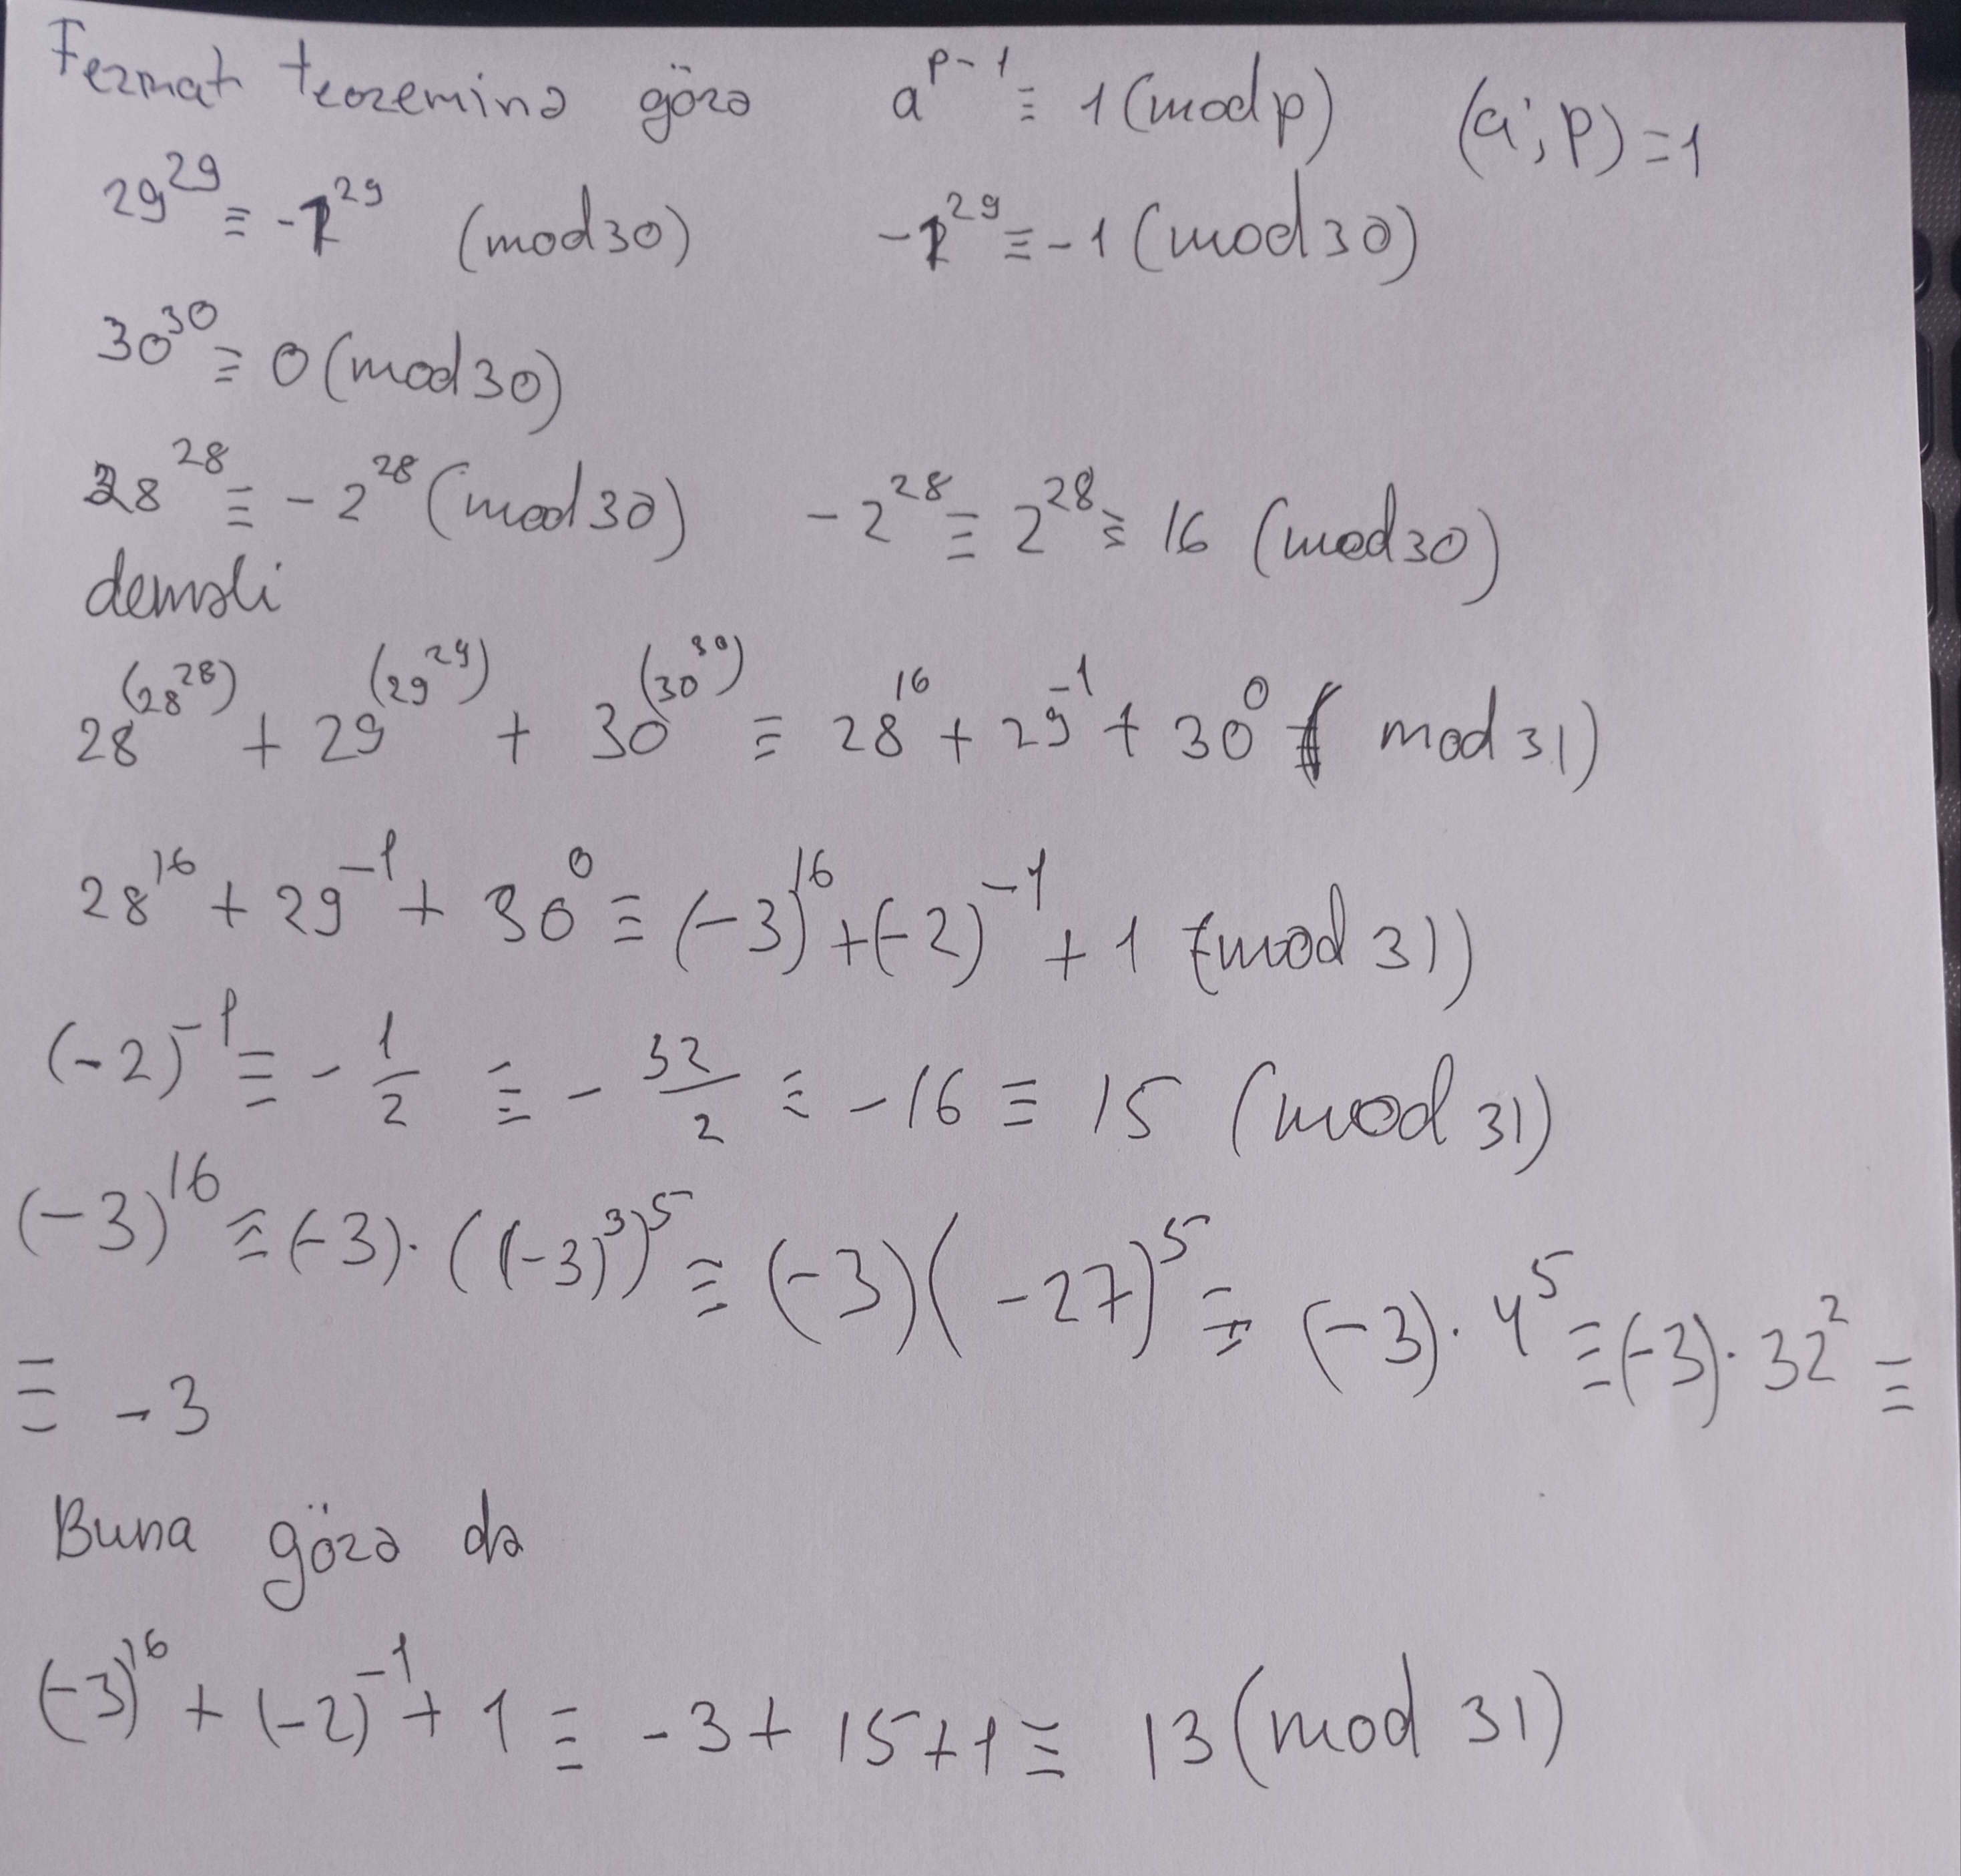 Fermat teoreminə görə a^{p-1} ≡ 1 (mod p) (a; p) = 1
29^{29} ≡ -1^{29} (mod 30) -1^{29} ≡ -1 (mod 30)
30^{30} ≡ 0 (mod 30)
28^{28} ≡ -2^{28} (mod 30) -2^{28} ≡ 2^{28} ≡ 16 (mod 30)
deməli
28^{(28^{28})} + 29^{(29^{29})} + 30^{(30^{30})} ≡ 28^{16} + 29^{-1} + 30^{0} (mod 31)
28^{16} + 29^{-1} + 30^{0} ≡ (-3)^{16} + (-2)^{-1} + 1 (mod 31)
(-2)^{-1} ≡ - \frac{1}{2} ≡ - \frac{32}{2} ≡ -16 ≡ 15 (mod 31)
(-3)^{16} ≡ (-3) · ((-3)^{3})^{5} ≡ (-3)(-27)^{5} ≡ (-3) · 4^{5} ≡ (-3) · 32^{2} ≡
≡ -3
Buna görə də
(-3)^{16} + (-2)^{-1} + 1 ≡ -3 + 15 + 1 ≡ 13 (mod 31)